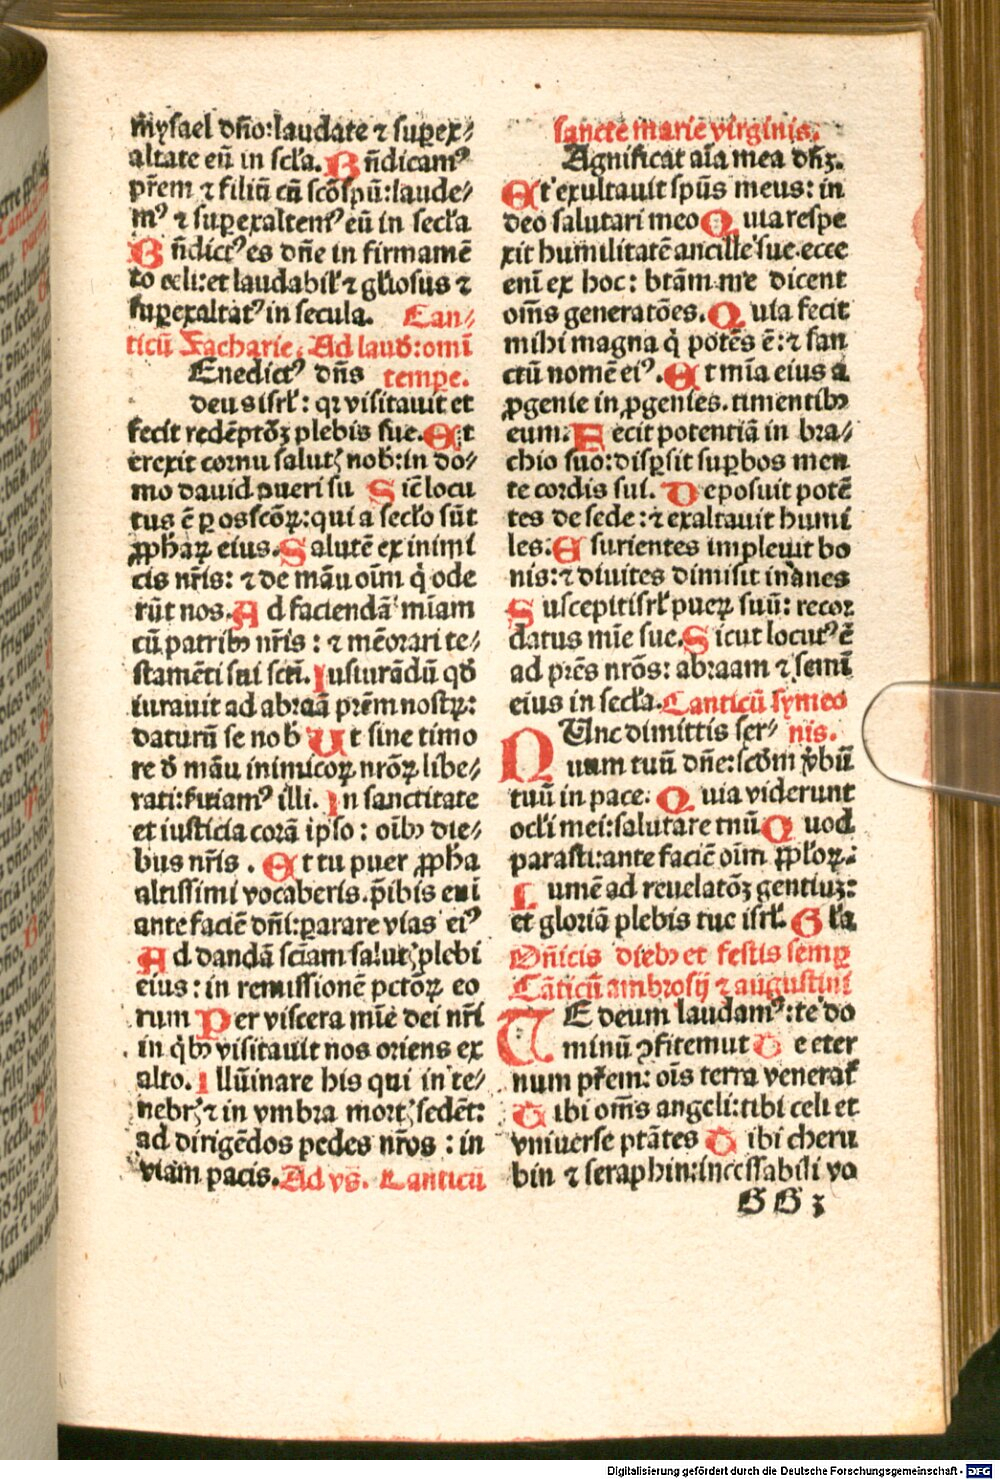 mysael dño: laudate ⁊ superex⸗
altate eū in scła. Bñdicamꝰ
přem ⁊ filiū cū scõ spū: laude⸗
mꝰ ⁊ superexaltemꝰ eū in secła
Bñdictꝰ es dñe in firmamē
to celi: et laudabił ⁊ głiosus ⁊
suꝑexaltatꝰ in secula. Can⸗
ticū Zacharie. Ad laud̄: omi
Enedictꝰ dñs tempe.
deus isrł: qꝛ visitauit et
fecit redēptōꝫ plebis sue. Et
erexit cornu salutꝭ nob̄: in do⸗
mo dauid pueri su Sic̄ locu
tus ē ꝑ os scōꝝ: qui a secło sūt
ꝓphaꝝ eius. Salutē ex inimi
cis nr̄is: ⁊ de māu oīm q̇ ode
rūt nos. Ad faciendā mīam
cū patribꝰ nr̄is: ⁊ mēorari te⸗
stamēti sui scti. Iusiurādū qd̄
iurauit ad abraā přem nostꝝ:
daturū se nob̄ Ut sine timo
re d̄ māu inimicoꝝ nrōꝝ libe⸗
rati: ẜuiamꝰ illi. In sanctitate
et iusticia corā ipso: oībꝰ die⸗
bus nr̄is. Et tu puer ꝓpha
altissimi vocaberis. p̄ibis eni
ante faciē dñi: parare vias eiꝰ
Ad dandā sciam salutꝭ plebi
eius: in remissionē pctōꝝ eo
rum Per viscera mīe dei nr̄i
in q̇bꝰ visitauit nos oriens ex
alto. Illūinare his qui in te⸗
nebrꝭ ⁊ in vmbra mortꝭ sedēt:
ad dirigēdos pedes nr̄os: in
viam pacis. Ad vs̄. Canticū
sancte marie virginis.
Agnificat aīa mea dñꝫ.
Et exultauit spūs meus: in
deo salutari meo Quia respe
xit humilitatē ancille sue. ecce
enī ex hoc: btām me dicent
om̄s generatōes. Quia fecit
mihi magna q̇ potēs ē: ⁊ san
ctū nomē eiꝰ. Et mīa eius a
ꝓgenie in ꝓgenies. timentibꝰ
eum. Fecit potentiā in bra⸗
chio suo: dispsit supbos men
te cordis sui. Deposuit potē
tes de sede: ⁊ exaltauit humi
les. Esurientes impleuit bo
nis: ⁊ diuites dimisit inanes
Suscepit isrł pueꝝ suū: recoꝛ
datus mīe sue. Sicut locutꝰ ē
ad prēs nrōs: abraam ⁊ semī
eius in secła. Canticū symeo
Unc dimittis ser⸗ nis.
uum tuū dñe: scdm v̇bū
tuū in pace. Quia viderunt
ocłi mei: salutare tuū Quod
parasti: ante faciē oīm ꝓpłoꝝ:
Lumē ad reuelatōꝫ gentiuꝫ:
et gloriā plebis tue isrł. Gła
Dñicis diebꝰ et festis semꝑ
Cāticū ambrosij ⁊ augustini
TE deum laudamꝰ: te do
minū ꝯfitemur Te eter
num přem: oīs terra venerať
Tibi om̄s angeli: tibi celi et
vniuerse ptātes Tibi cheru
bin ⁊ seraphin: incessabili vo
BB 3
Digitalisierung gefördert durch die Deutsche Forschungsgemeinschaft - DFG